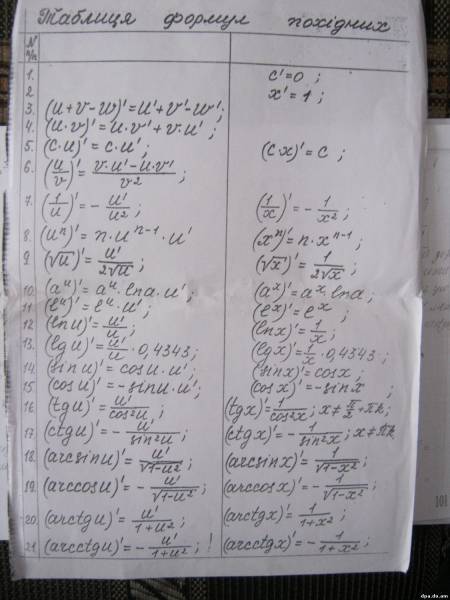 Таблиця формул похідних
N п/п
1. c'=0 ;
2 x'=1 ;
3. (u+v-w)'=u'+v'-w';
4. (u·v)'=u·v'+v·u' ;
5. (c·u)'=c·u'; (c·x)'=c ;
6. (u/v)'=(v·u'-u·v')/v² ;
7. (1/u)'=-u'/u² ; (1/x)'=-1/x² ;
8. (uⁿ)'=n·uⁿ⁻¹·u' (xⁿ)'=n·xⁿ⁻¹;
9. (√u)'=u'/2√u ; (√x)'=1/2√x ;
10. (aᵘ)'=aᵘ·lna·u'; (aˣ)'=aˣ·lna;
11. (eᵘ)'=eᵘ·u'; (eˣ)'=eˣ ;
12 (lnu)'=u'/u ; (lnx)'=1/x ;
13. (lgu)'=u'/u·0,4343; (lgx)'=1/x·0,4343;
14 (sinu)'=cosu·u'; (sinx)'=cosx;
15 (cosu)'=-sinu·u'; (cosx)'=-sinx ;
16 (tgu)'=u'/cos²u ; (tgx)'=1/cos²x; x≠π/2+πk;
17. (ctgu)'=-u'/sin²u ; (ctgx)'=-1/sin²x; x≠πk
18. (arcsinu)'=u'/√1-u² ; (arcsinx)'=1/√1-x² ;
19. (arccosu)'=-u'/√1-u² ; (arccosx)'=-1/√1-x² ;
20. (arctgu)'=u'/1+u² ; (arctgx)'=1/1+x² ;
21 (arcctgu)'=-u'/1+u² ; ! (arcctgx)'=-1/1+x² ;
101
dpa.do.am